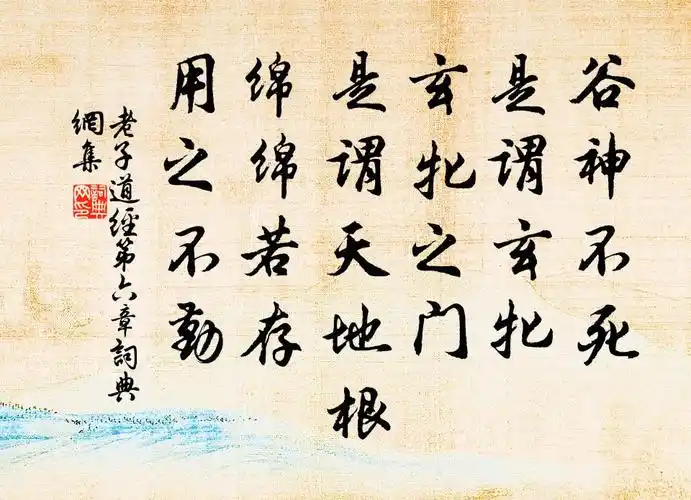 谷神不死
是谓玄牝
玄牝之门
是谓天地根
绵绵若存
用之不勤
老子道經第六章詞典
網集